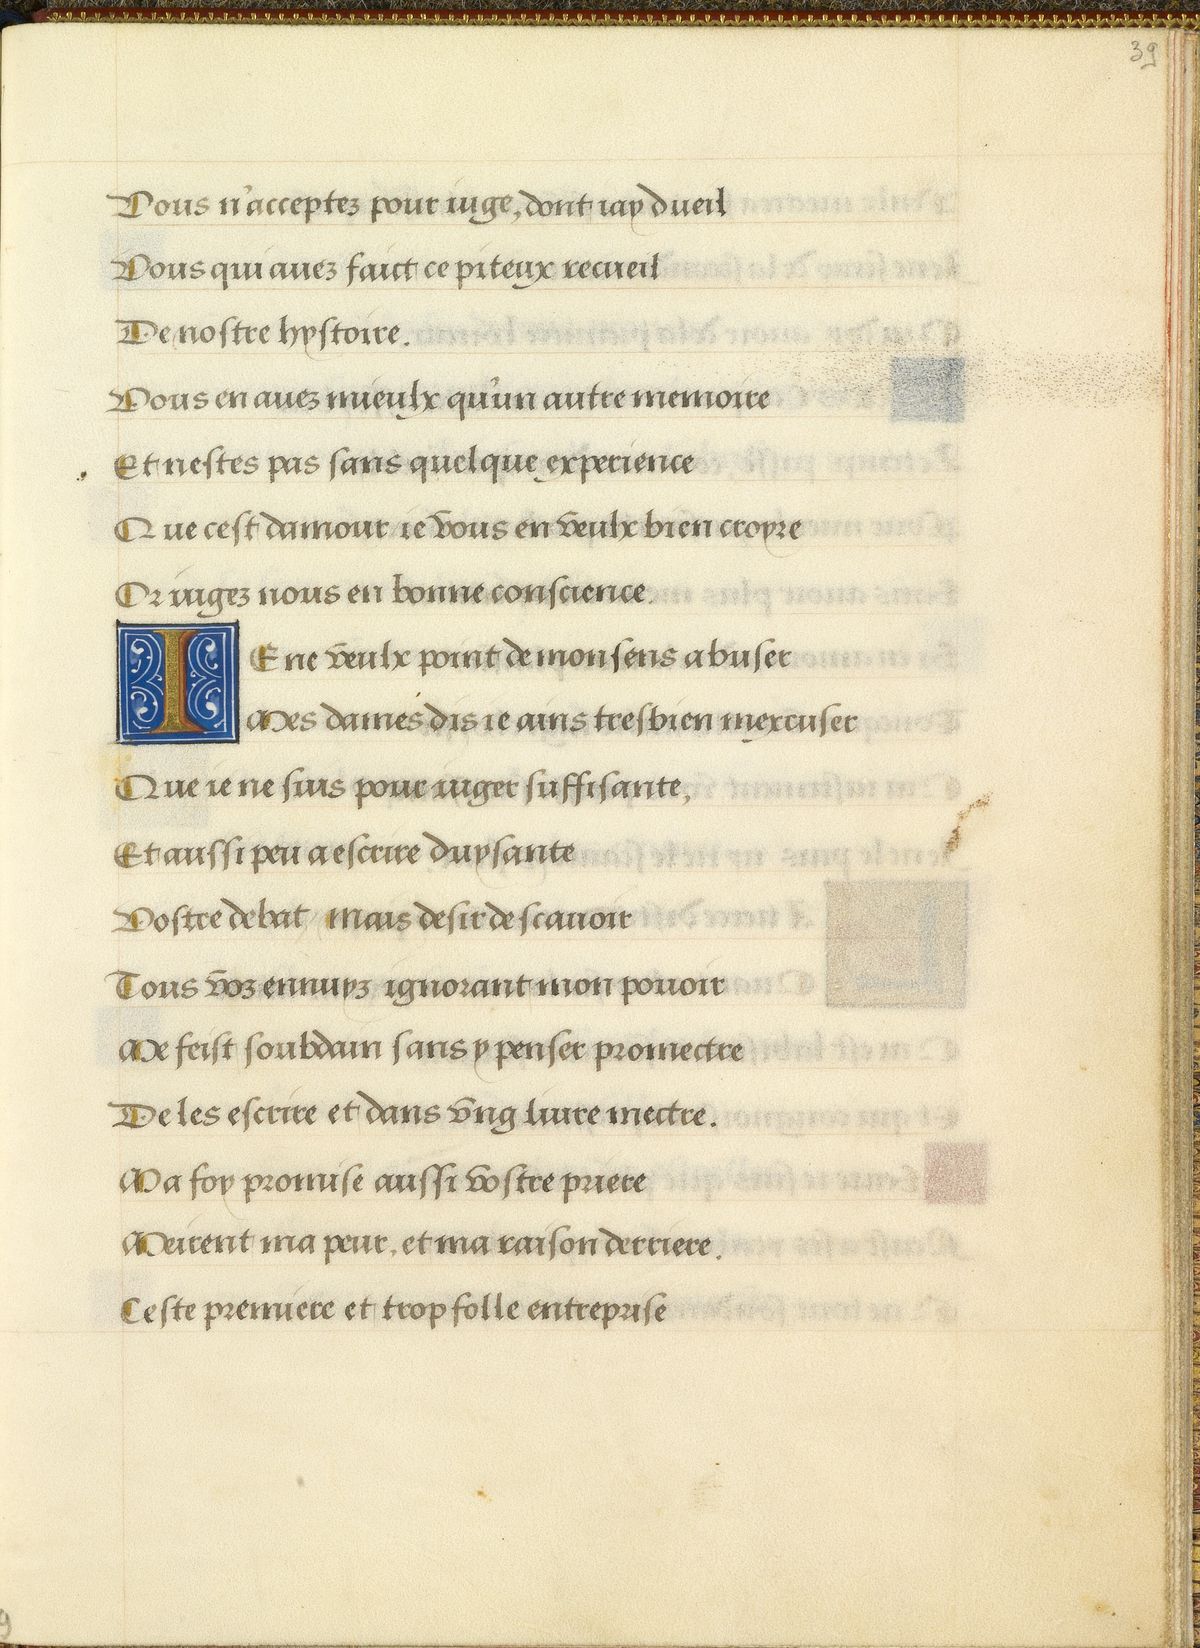 39
Vous n'acceptez pour iuge, dont iay dueil
Vous qui auez faict ce piteux recueil
De nostre hystoire.
Vous en auez mieulx qu'un autre memoire
Et nestes pas sans quelque experience
Que cest damour ie vous en veulx bien croyre
Or iugez nous en bonne conscience.
IE ne veulx point de mon sens abuser
Mes dames dis ie ains tresbien mexcuser
Que ie ne suis pour iuger suffisante,
Et aussi peu a escrire duysante
Vostre debat mais desir de scauoir
Tous voz ennuyz ignorant mon pouoir
Me feist soubdain sans y penser promectre
De les escrire et dans vng liure mectre.
Ma foy promise aussi vostre priere
Meirent ma peur, et ma raison derriere.
Ceste premiere et trop folle entreprise